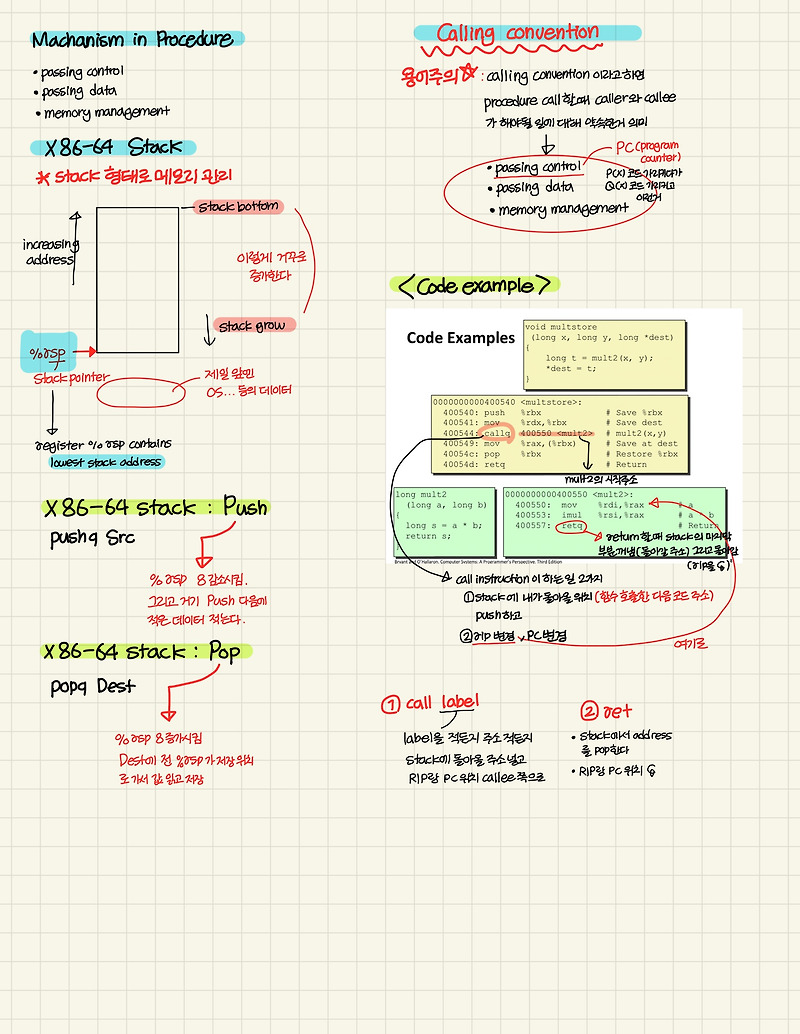 Machanism in Procedure
• passing control
• passing data
• memory management
X86-64 Stack
* stack 형태로 메모리 관리
stack bottom
increasing
address
이렇게 거꾸로
증가한다
stack grow
%rsp
Stack pointer
제일 앞만
OS... 등의 데이터
register %rsp contains
lowest stack address
X86-64 stack : Push
pushq Src
%rsp 8감소시킴.
그리고 거기 Push 다음에
적은 데이터 적는다.
X86-64 stack : Pop
popq Dest
%rsp 8증가시킴
Dest에 전 %rsp가 저장위치
로 가서 값 읽고 저장
Calling convention
용어주의☆ : calling convention 이라고하면
procedure call 할때 caller와 callee
가 해야될 일에 대해 약속한거 의미
• passing control
PC (program
counter)
P(x) 코드 가리키다가
Q(x) 코드 가리키고
이런거
• passing data
• memory management
<Code example>
Code Examples
void multstore
(long x, long y, long *dest)
{
long t = mult2(x, y);
*dest = t;
}
0000000000400540 <multstore>:
400540: push %rbx # Save %rbx
400541: mov %rdx,%rbx # Save dest
400544: callq 400550 <mult2> # mult2(x,y)
400549: mov %rax,(%rbx) # Save at dest
40054c: pop %rbx # Restore %rbx
40054d: retq # Return
mult2의 시작주소
long mult2
(long a, long b)
{
long s = a * b;
return s;
}
0000000000400550 <mult2>:
400550: mov %rdi,%rax # a
400553: imul %rsi,%rax # a * b
400557: retq # Return
return 할때 stack의 마지막
부분꺼냄(돌아갈 주소) 그리고 돌아감
(rip을 
Bryant and O'Hallaron: Computer Systems: A Programmer's Perspective, Third Edition
call instruction 이 하는 일 2가지
① stack에 내가 돌아올 위치 (함수 호출한 다음 코드 주소)
push하고
② rip 변경, PC변경
여기로
① call label
label을 적든지 주소 적든지
Stack에 돌아올 주소 넣고
RIP랑 PC 위치 callee 쪽으로
② ret
• stack에서 address
를 pop한다
• RIP랑 PC 위치